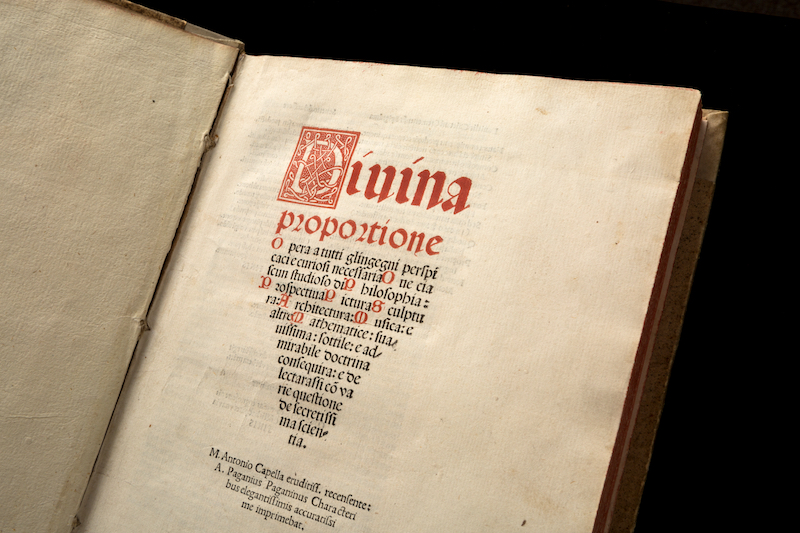 Diuina
proportione
Opera a tutti glingegni perspi
caci e curiosi necessaria Oue cia
scun studioso di Philosophia:
Prospectiua Pictura Sculptu
ra: Architectura: Musica: e
altre Mathematice: sua
uissima: sottile: e ad
mirabile doctrina
consequira: e de
lectarassi cõ va
rie questione
de secretissi
ma scien
tia.
M. Antonio Capella eruditiss. recensente:
A. Paganius Paganinus Characteri
bus elegantissimis accuratissi
me imprimebat.